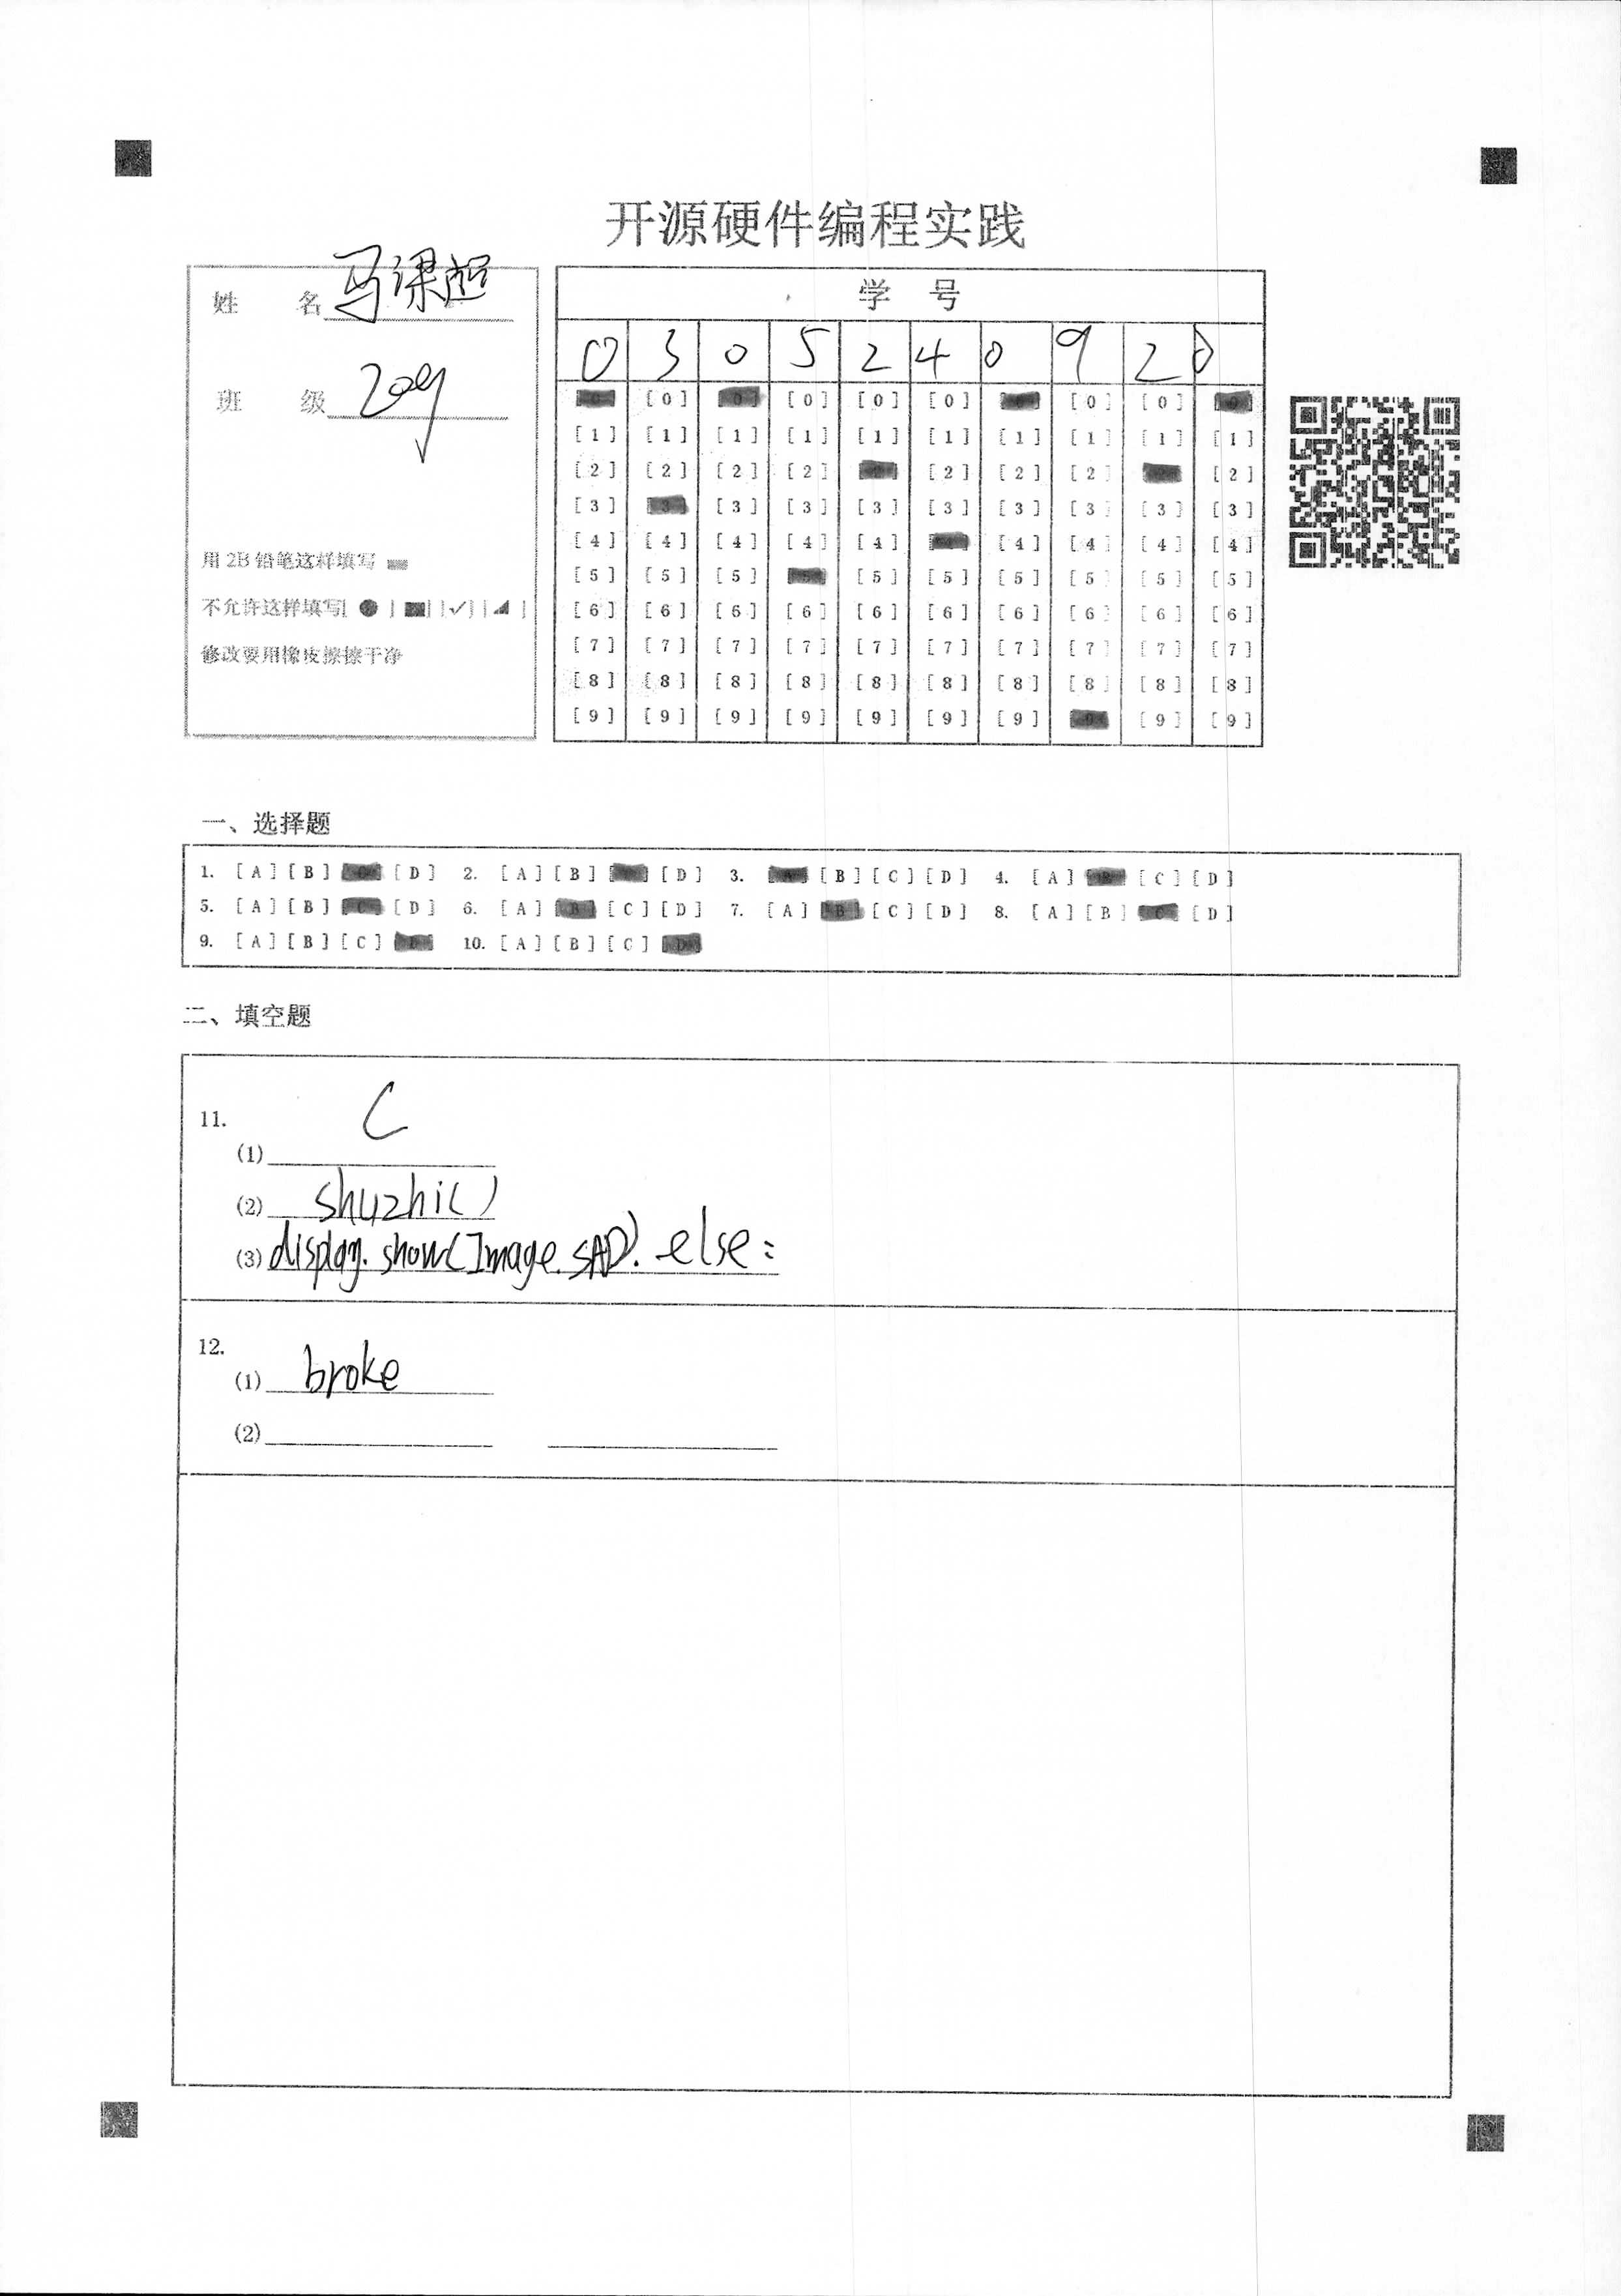 开源硬件编程实践
姓 名 马梁超
班 级 209
用 2B 铅笔这样填写
不允许这样填写[ ● ] [■] [✓] [◢ ]
修改要用橡皮擦擦干净
学 号
0 3 0 5 2 4 0 9 2 0
[0] [0] [0] [0] [0] [0] [0] [0] [0] [0]
[1] [1] [1] [1] [1] [1] [1] [1] [1] [1]
[2] [2] [2] [2] [2] [2] [2] [2] [2] [2]
[3] [3] [3] [3] [3] [3] [3] [3] [3] [3]
[4] [4] [4] [4] [4] [4] [4] [4] [4] [4]
[5] [5] [5] [5] [5] [5] [5] [5] [5] [5]
[6] [6] [6] [6] [6] [6] [6] [6] [6] [6]
[7] [7] [7] [7] [7] [7] [7] [7] [7] [7]
[8] [8] [8] [8] [8] [8] [8] [8] [8] [8]
[9] [9] [9] [9] [9] [9] [9] [9] [9] [9]
一、选择题
1. [A] [B] [C] [D] 2. [A] [B] [C] [D] 3. [A] [B] [C] [D] 4. [A] [B] [C] [D]
5. [A] [B] [C] [D] 6. [A] [B] [C] [D] 7. [A] [B] [C] [D] 8. [A] [B] [C] [D]
9. [A] [B] [C] [D] 10. [A] [B] [C] [D]
二、填空题
11.
(1) C
(2) shuzhi()
(3) display.show(Image.SAD). else:
12.
(1) broke
(2)